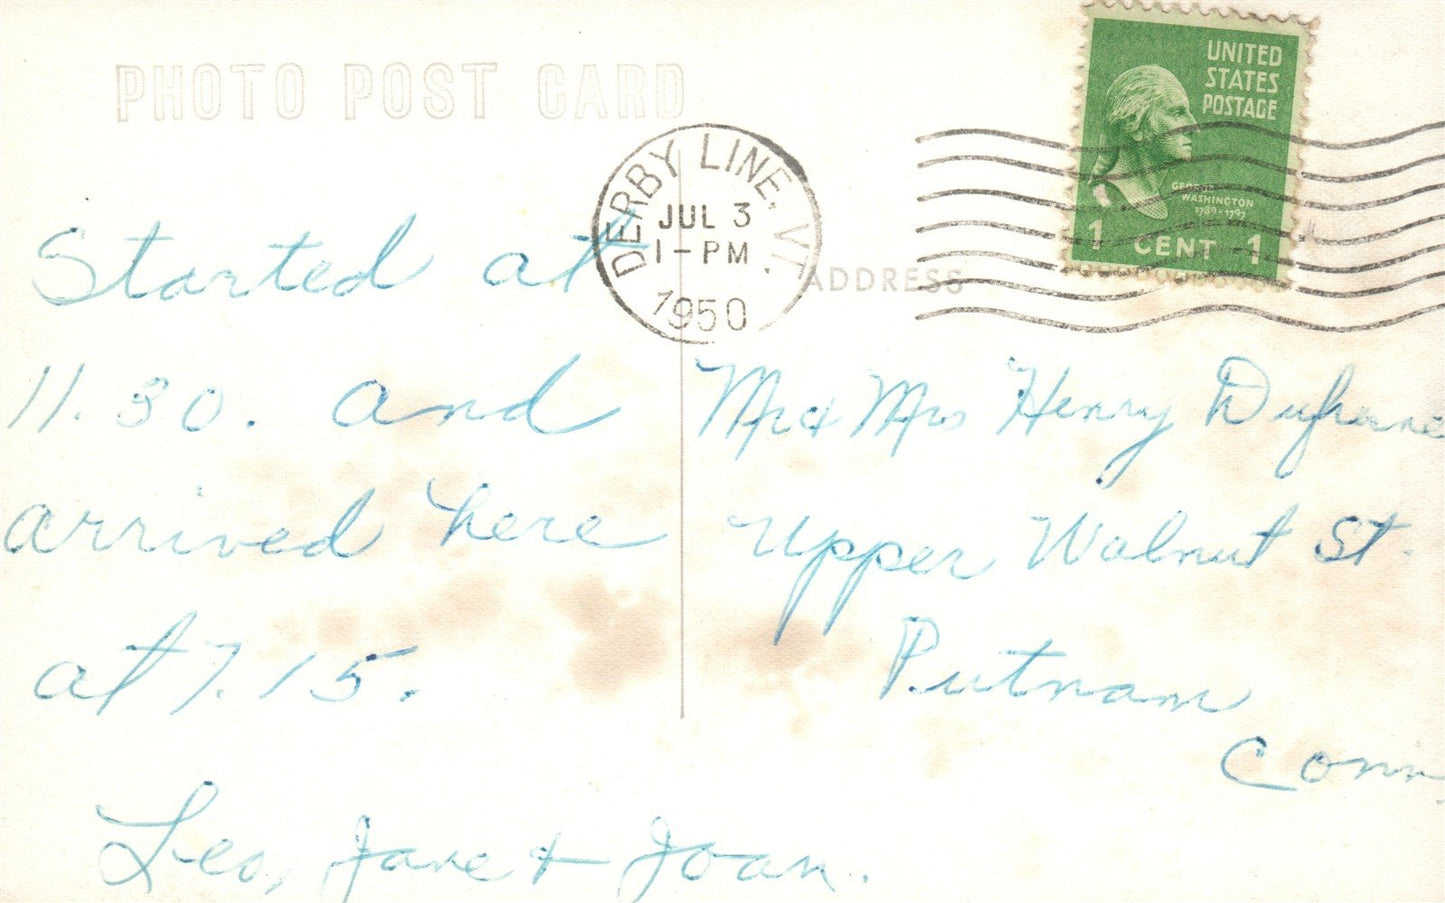 PHOTO POST CARD
UNITED
STATES
POSTAGE
GEORGE
WASHINGTON
1789-1797
1 CENT 1
DERBY LINE, VT.
JUL 3
1-PM
1950
ADDRESS
Started at
11.30. and
arrived here
at 7.15.
Leo, Jane & Joan.
Mr & Mrs Henry
Upper Walnut St.
Putnam
Conn.